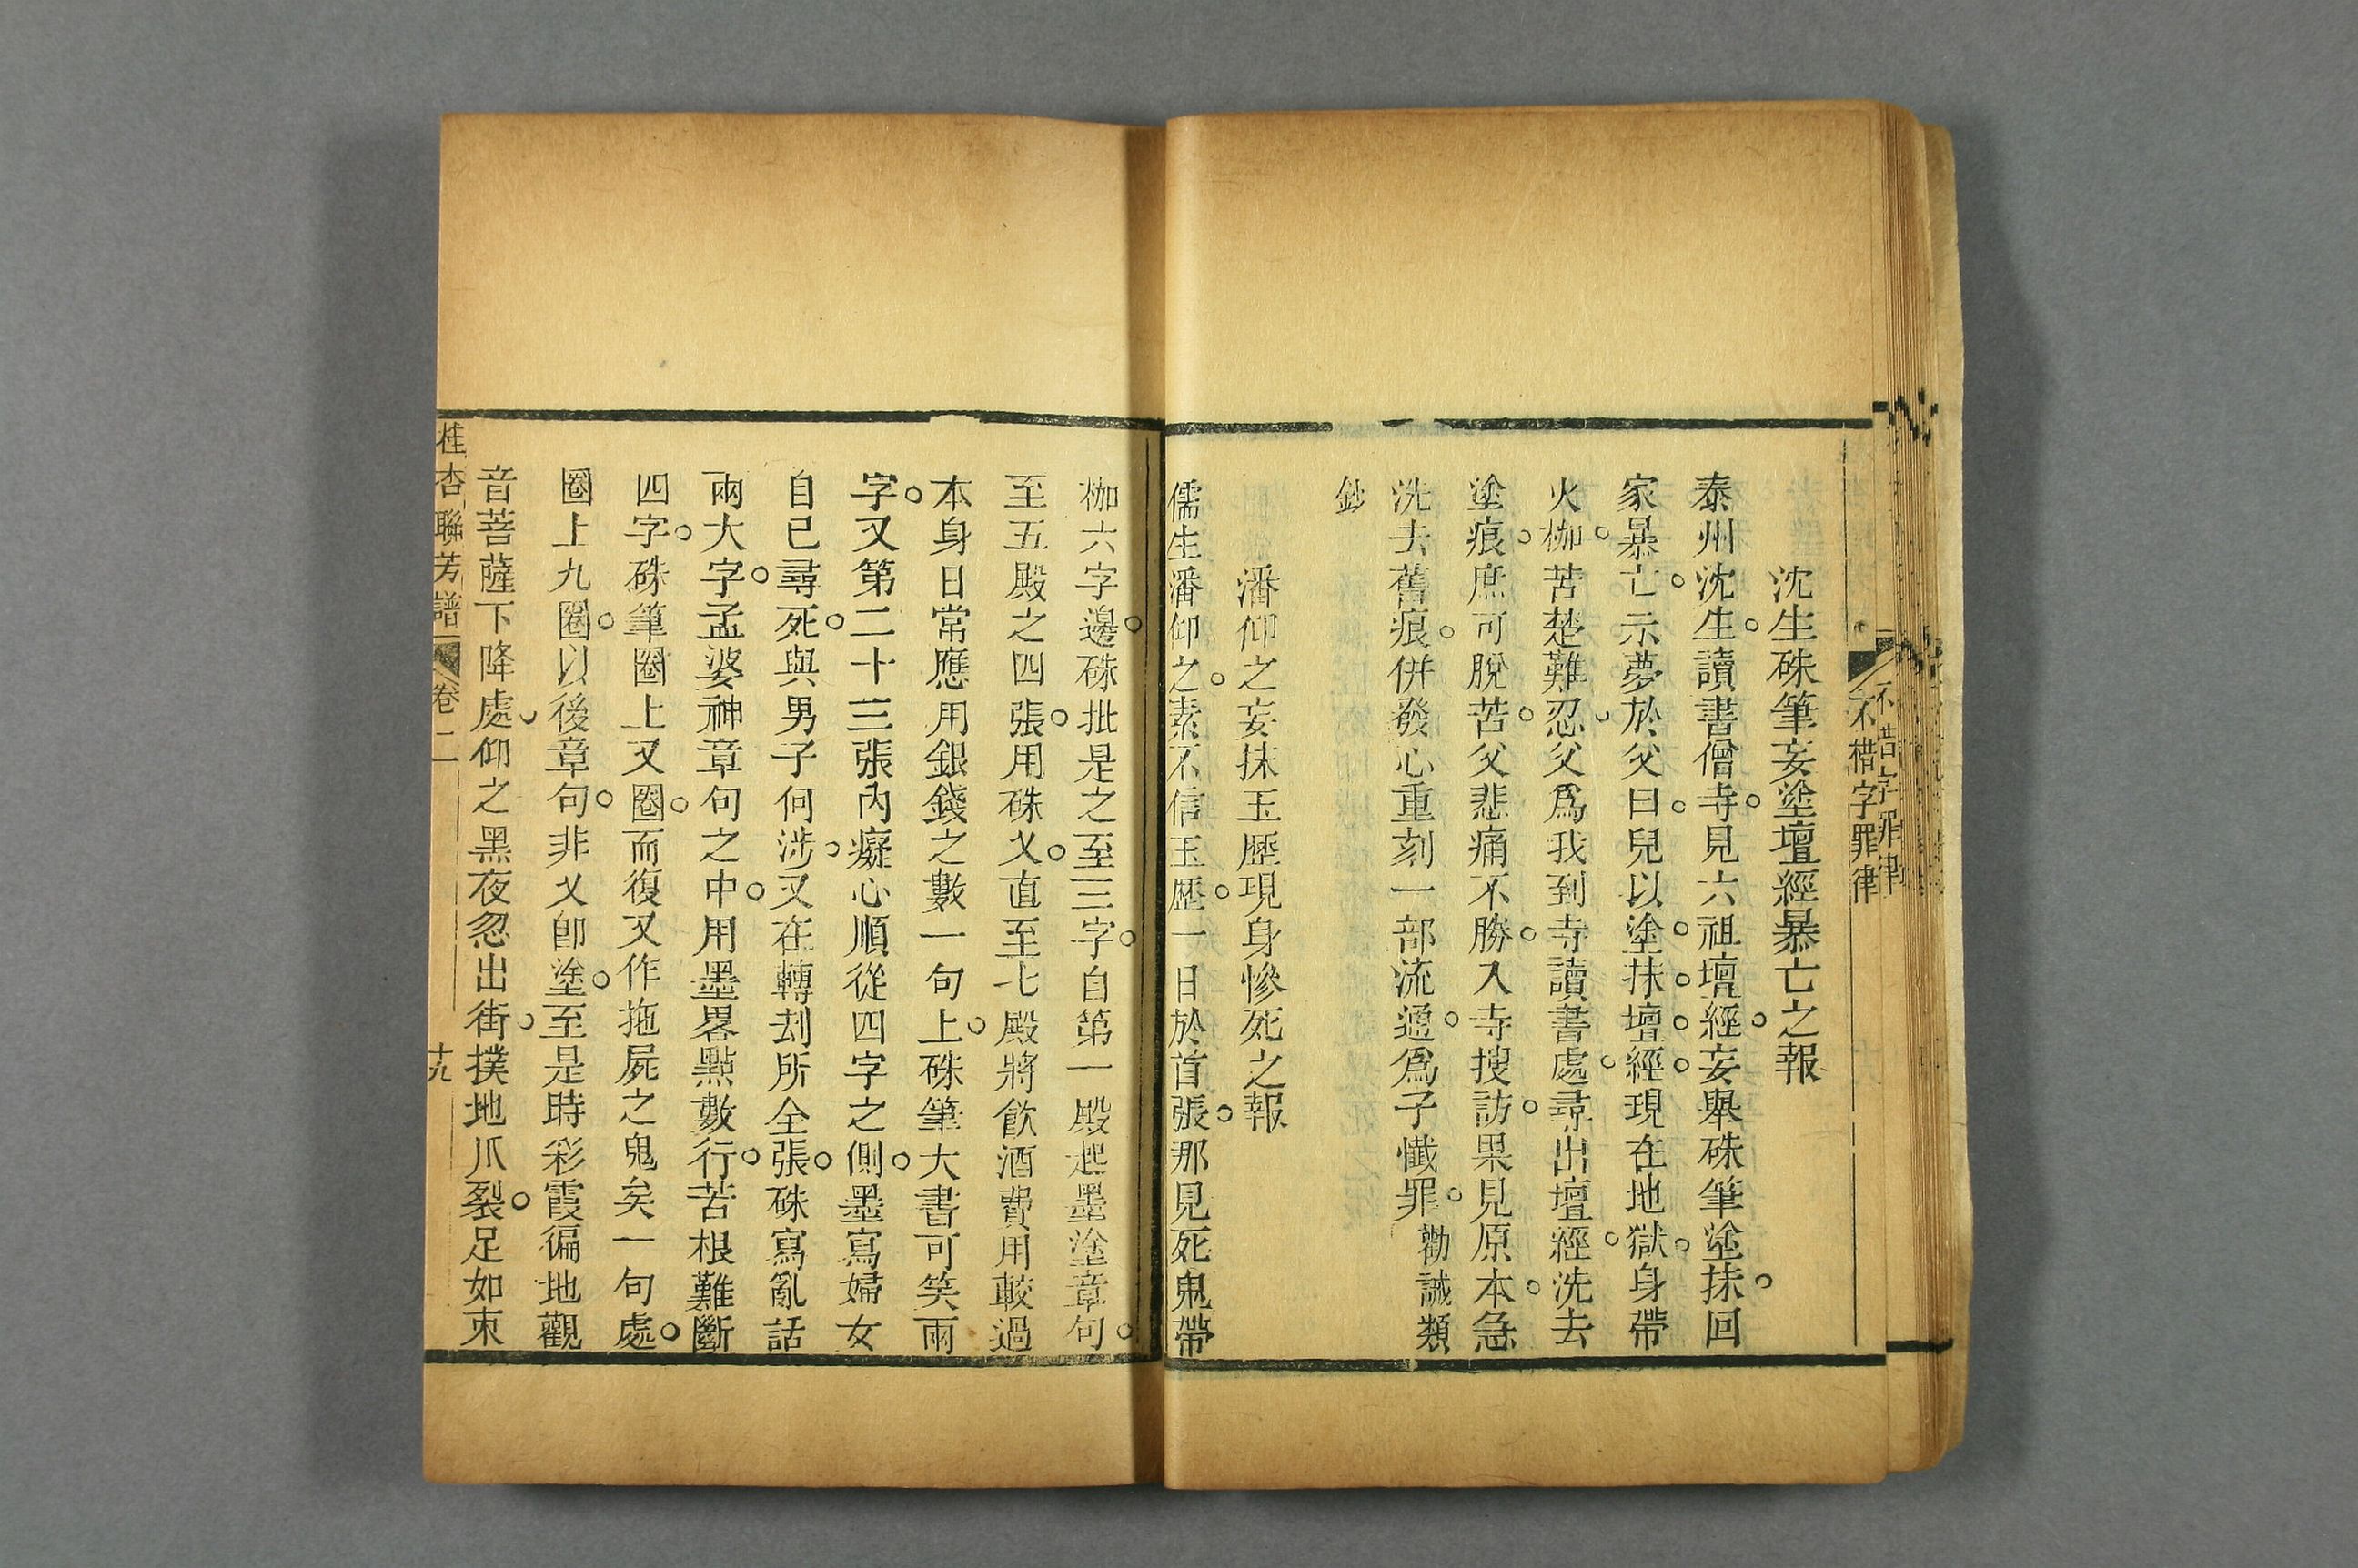 不惜字罪律
不惜字罪律
沈生硃筆妄塗壇經暴亡之報
泰州沈生。讀書僧寺。見六祖壇經。妄舉硃筆塗抹。回
家暴亡。示夢於父曰。兒以塗。抹。壇。經。現在地獄。身帶
火枷。苦楚難忍。父爲我到寺讀書處。尋出壇經。洗去
塗痕。庶可脫苦。父悲痛不勝。入寺搜訪。果見原本。急
洗去舊痕。併發心重刻一部流通。爲子懺罪。勸誡類
鈔
潘仰之妄抹玉歷現身慘死之報
儒生潘仰之。素不信玉歷。一日於首張。那見死鬼帶
枷六字邊。硃批是之至三字。自第一殿起墨塗章句。
至五殿之四張。用硃乂。直至七殿將飲酒費用較過
本身日常應用銀錢之數一句上。硃筆大書可笑兩
字。又第二十三張內癡心順從四字之側。墨寫婦女
自已尋死。與男子何涉。又在轉刦所全張。硃寫亂話
兩大字。孟婆神章句之中。用墨畧點數行。苦根難斷
四字。硃筆圈上又圈。而復又作拖屍之鬼矣一句處。
圈上九圈。以後章句。非乂卽塗。至是時彩霞徧地觀
音菩薩下降處。仰之黑夜忽出街。撲地爪裂。足如朿
桂杏聯芳譜 卷二 十九